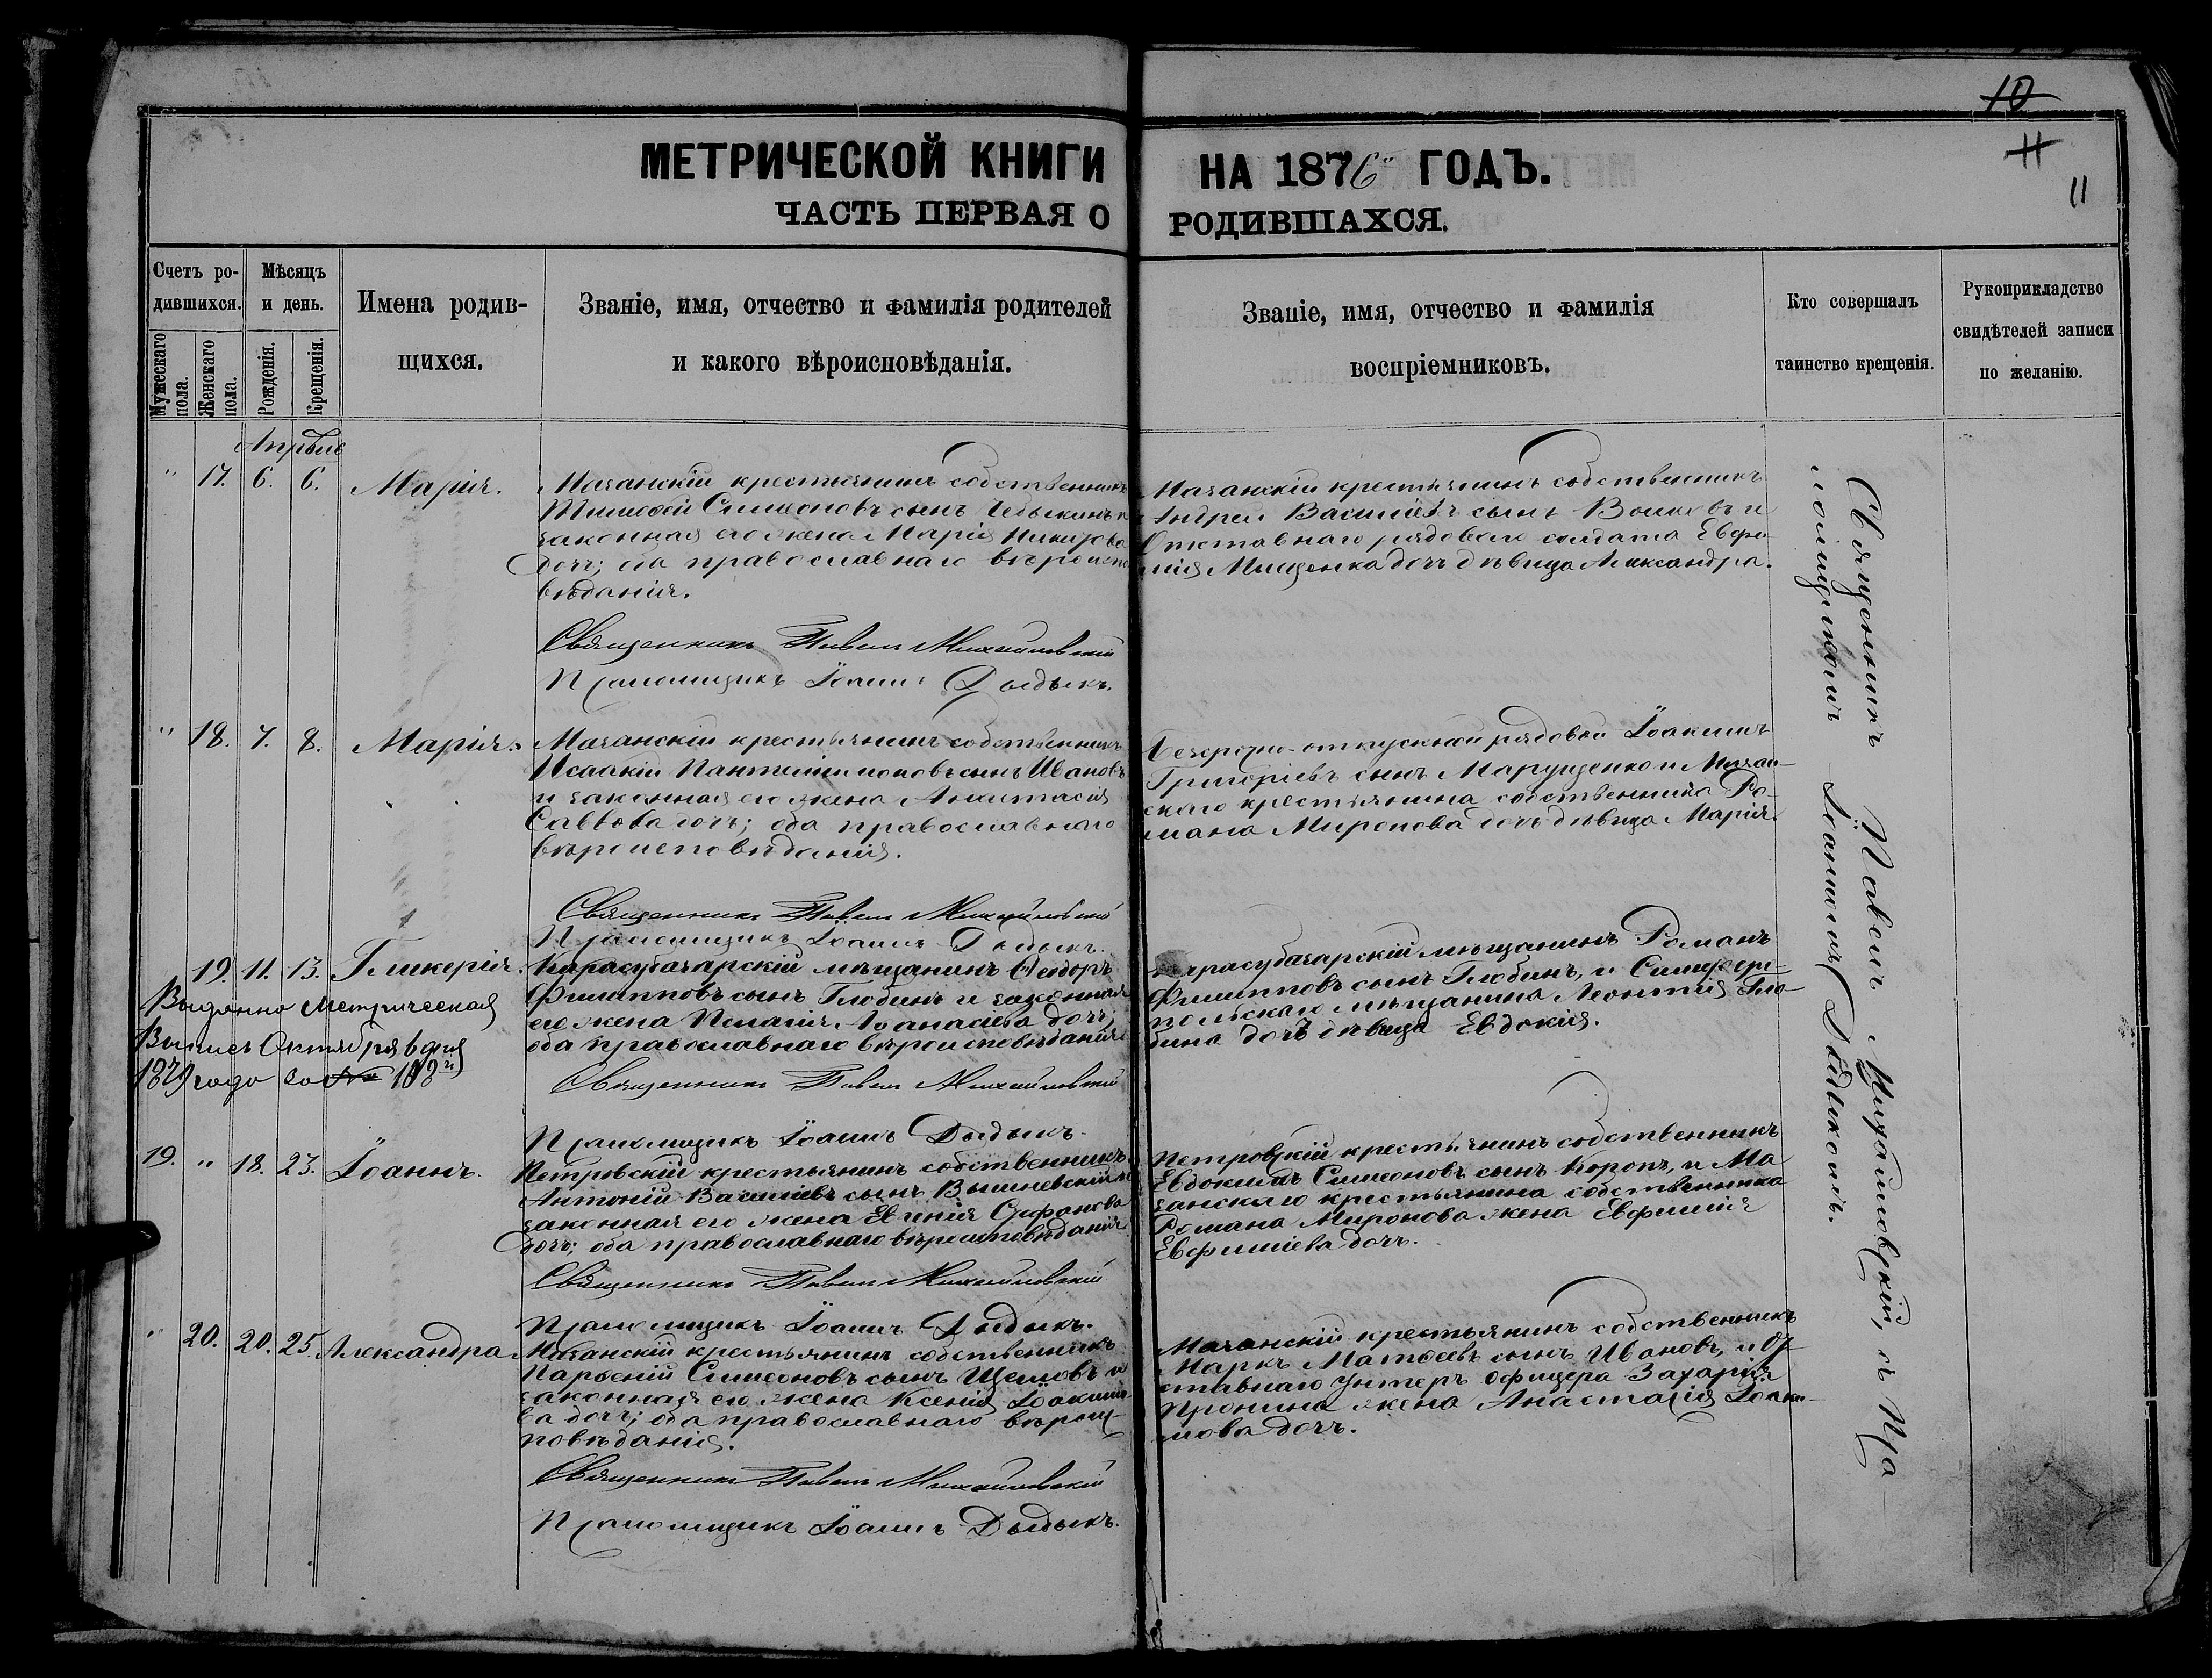 10
11
11
МЕТРИЧЕСКОЙ КНИГИ НА 1876й ГОДЪ.
ЧАСТЬ ПЕРВАЯ О РОДИВШАХСЯ.
Счетъ родившихся.
Мужескаго пола.
Женскаго пола.
Мѣсяцъ и день.
Рожденія.
Крещенія.
Имена родив-
щихся.
Званіе, имя, отчество и фамилія родителей
и какого вѣроисповѣданія.
Званіе, имя, отчество и фамилія
воспріемниковъ.
Кто совершалъ
таинство крещенія.
Рукоприкладство
свидѣтелей записи
по желанію.
Апрѣль
" 17. 6. 6. Марія.
Мазанскій крестьянинъ собственникъ
Тимофей Симеоновъ сынъ и
законная его жена Марія
дочь; оба православнаго вѣроиспо
вѣданія.
Священникъ Павелъ Михайловскій
Псаломщикъ Іоаннъ Дыдыкъ.
Мазанскій крестьянинъ собственникъ
Андрей Васильевъ сынъ Волковъ и
Отставнаго рядоваго солдата Евфи-
мія Мищенка дочь дѣвица Александра.
" 18. 7. 8. Марія.
Мазанскій крестьянинъ собственникъ
Исаакій Пантелеимоновъ сынъ Ивановъ
и законная его жена Анастасія
Саввова дочь; оба православнаго
вѣроисповѣданія.
Священникъ Павелъ Михайловскій
Псаломщикъ Іоаннъ Дыдыкъ.
Безсрочно-отпускной рядовой Іоакимъ
Григоріевъ сынъ Марущенко и Мазан-
скаго крестьянина собственника Ро-
мана Миронова дочь дѣвица Марія.
19. 11. 13. Гликерія.
Выдана Метрическая
Выпись Октября 6 дня
1879 года за № 108й
Карасубазарскій мѣщанинъ Феодоръ
Филипповъ сынъ Глюбинъ и законная
его жена Пелагія Афанасіева дочь;
оба православнаго вѣроисповѣданія
Священникъ Павелъ Михайловскій
Псаломщикъ Іоаннъ Дыдыкъ.
Карасубазарскій мѣщанинъ Романъ
Филипповъ сынъ Глюбинъ, и Симферо-
польскаго мѣщанина Леонтія Глю-
бина дочь дѣвица Евдокія.
19. " 18. 23. Іоаннъ.
Петровскій крестьянинъ собственникъ
Антоній Васильевъ сынъ Вышневскій и
законная его жена
дочь; оба православнаго вѣроисповѣданія
Священникъ Павелъ Михайловскій
Псаломщикъ Іоаннъ Дыдыкъ.
Петровскій крестьянинъ собственникъ
Евдокимъ Симеоновъ сынъ Коропъ, и Ма
занскаго крестьянина собственника
Романа Миронова жена Евфимія
Евфиміева дочь.
" 20. 20. 25. Александра
Мазанскій крестьянинъ собственникъ
Симеоновъ сынъ и
законная его жена Ксенія Іоакимо
ва дочь; оба православнаго вѣроис-
повѣданія.
Священникъ Павелъ Михайловскій
Псаломщикъ Іоаннъ Дыдыкъ.
Мазанскій крестьянинъ собственникъ
Маркъ Матѳеевъ сынъ Ивановъ, и От-
ставнаго Унтеръ Офицера Захарія
Пронина жена Анастасія Іоаки-
мова дочь.
Священникъ Павелъ Михайловскій, съ Пса
ломщикомъ Іоанномъ Дыдыкомъ.